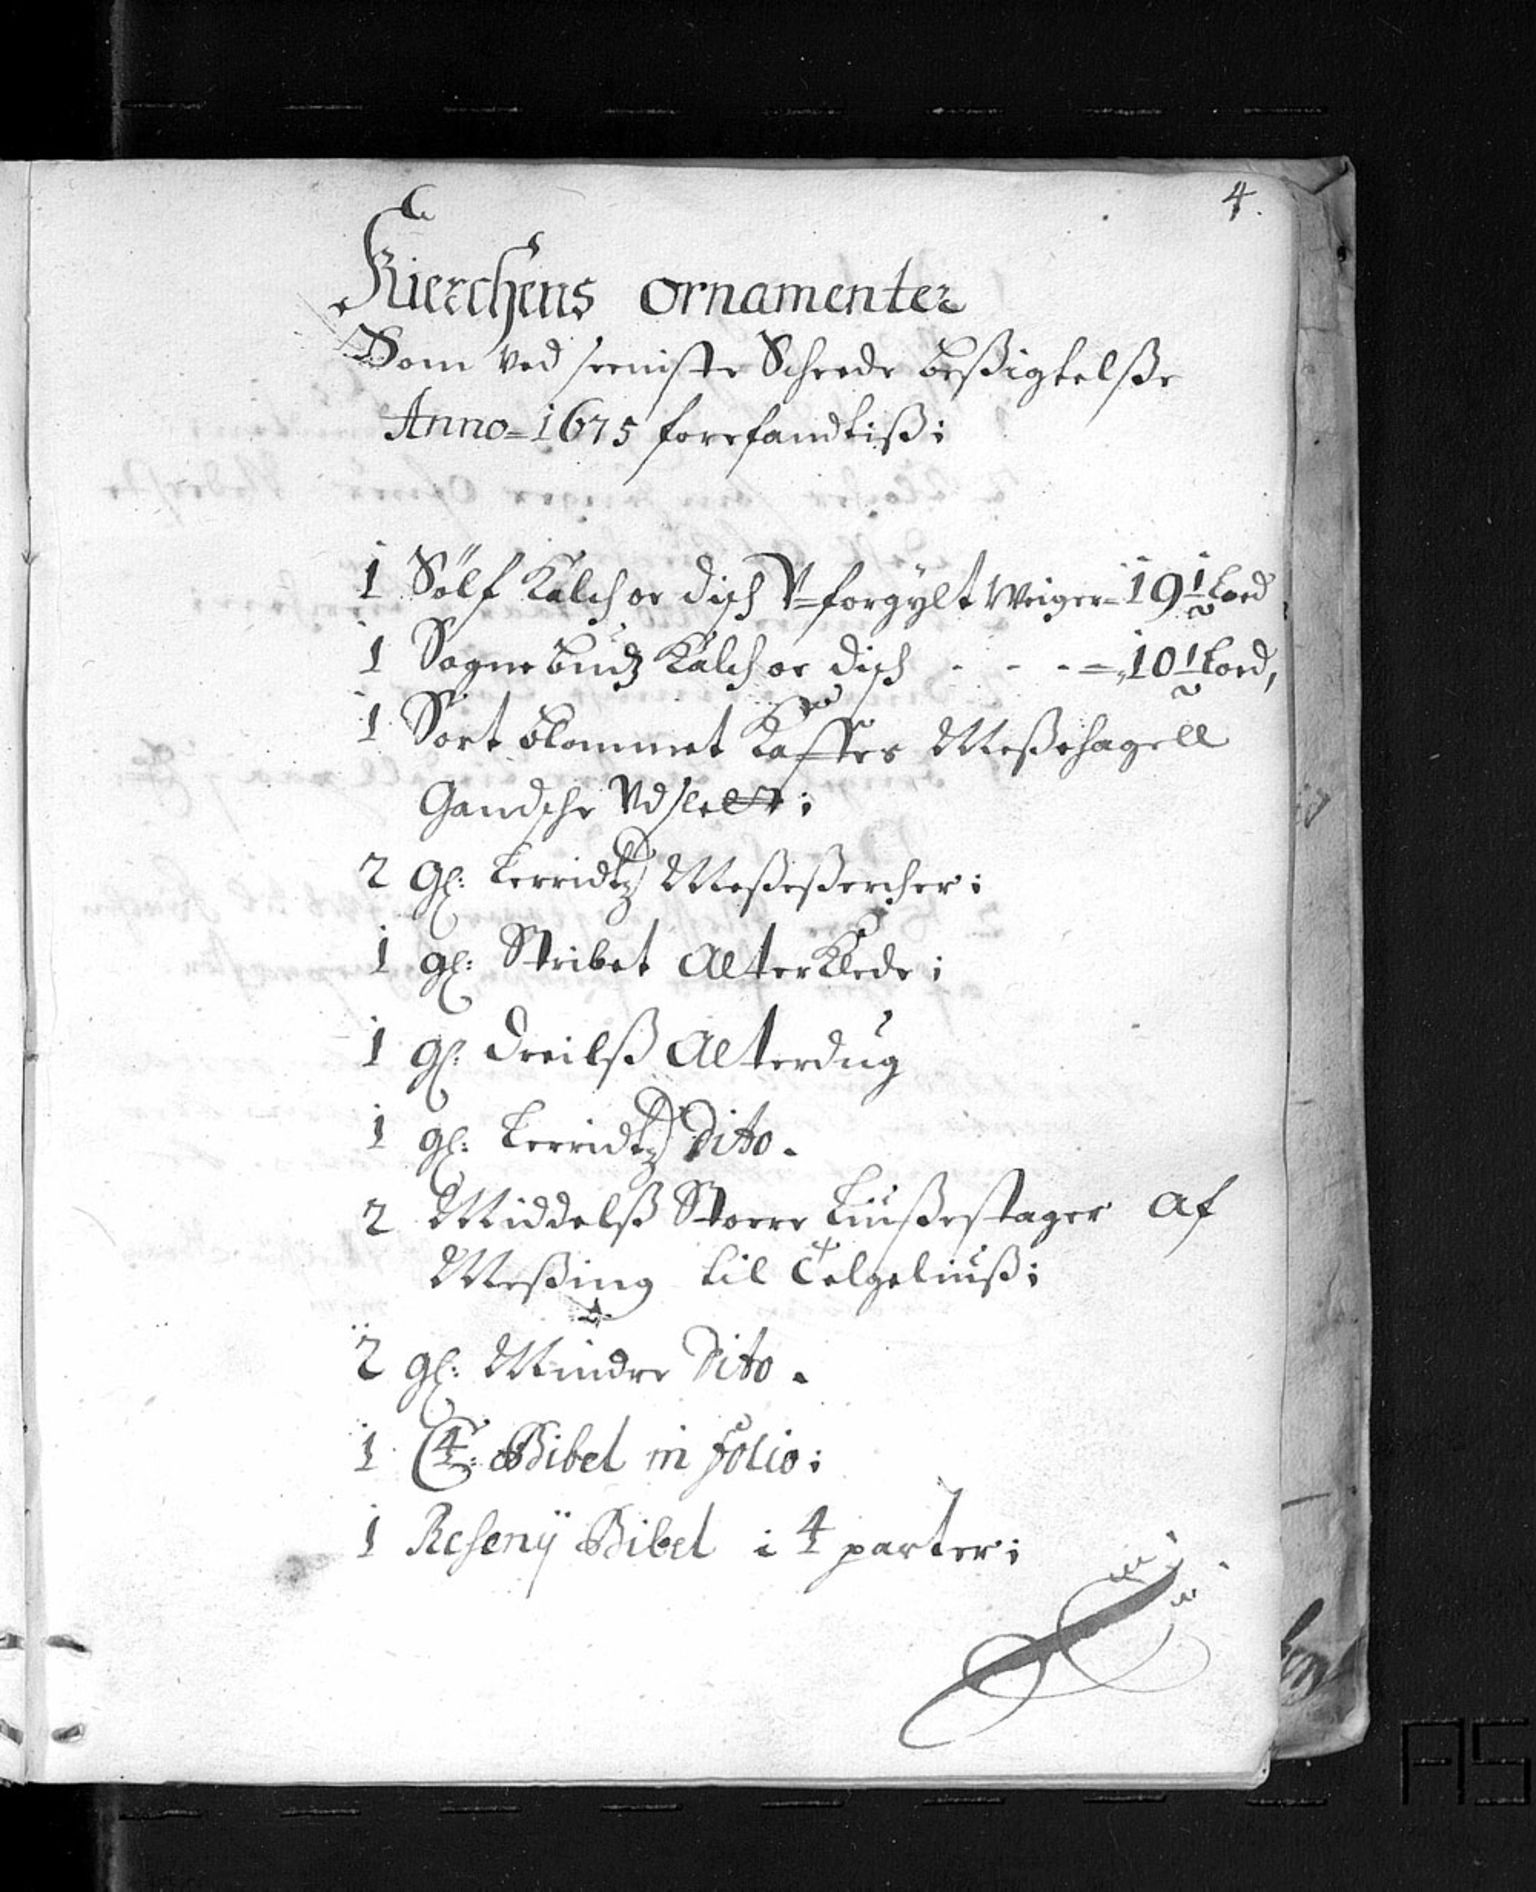 4.
Kierchens ornamenter
Som ved seeniste Scheede beßigtelße
Anno = 1675 forefandtiß:
1 Sölf Kalch oc disch V=forgÿlt Weiger = 19½ Loed
1 Sognebudz Kalch oc disch - - - = 10½ Loed,
1 Sort blommet Kaffes Meßehagell
Gandsche Vdslet:
2 gl: Lerridtz Meßeßercher:
1 gl: Stribet Alterklede:
1 gl: dreilß Alterdug
1 gl: Lerridtz Dito.
2 Middelß Stoere Liußestager af
Meßing til Telgeliuß:
2 gl: Mindre Dito.
1 Bibel in folio:
1 Resenÿ Bibel i 4 parter: